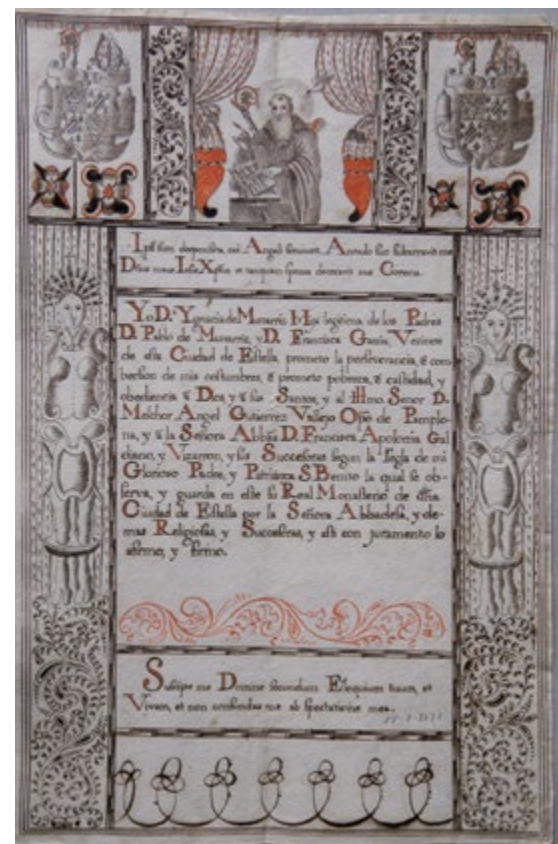 Ipsi sum desponsata, cui Angeli serviunt, Annulo suo subarravit me
Dñus meus Iesu Xptus et tanquam sponsa decoravit me Corona.
Yo D.ª Ygnacia de Munarriz Hija legitima de los Padres
D. Pablo de Munarriz, y D. Francisca Garcia, Vecinos
de esta Ciudad de Estella, prometo la perseverancia, & com
bersion de mis costumbres, & prometo pobreza, & castidad, y
obediencia & Dios, y & sus Santos, y al Illmo Señor D.
Melchor Angel Gutierrez Vallejo Opõ de Pamplo-
na, y & la Señora Abbsa D. Francisca Apolonia Gal
diano, y Vizarron, y sus Succesoras segun la Regla de mi
Glorioso Padre, y Patriarca S. Benito la qual se ob-
serva, y guarda en este su Real Monasterio de dicha
Ciudad de Estella por la Señora Abbadesa, y de-
mas Religiosas, y Succesoras, y asi con juramento lo
afirmo, y firmo.
Suscipe me Domine secundum Eloquium tuum, et
Vivam, et non confundas me ab expectatione mea.